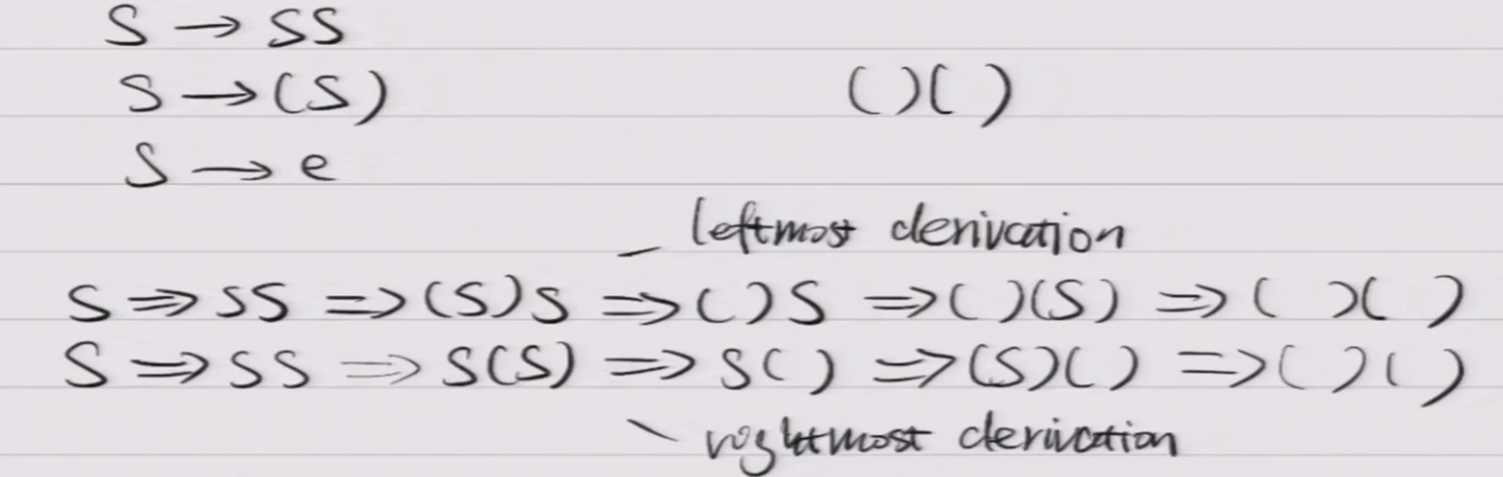 S → SS
S → (S) ()()
S → e
leftmost derivation
S ⇒ SS ⇒ (S)S ⇒ ()S ⇒ ()(S) ⇒ ()()
S ⇒ SS ⇒ S(S) ⇒ S() ⇒ (S)() ⇒ ()()
rightmost derivation